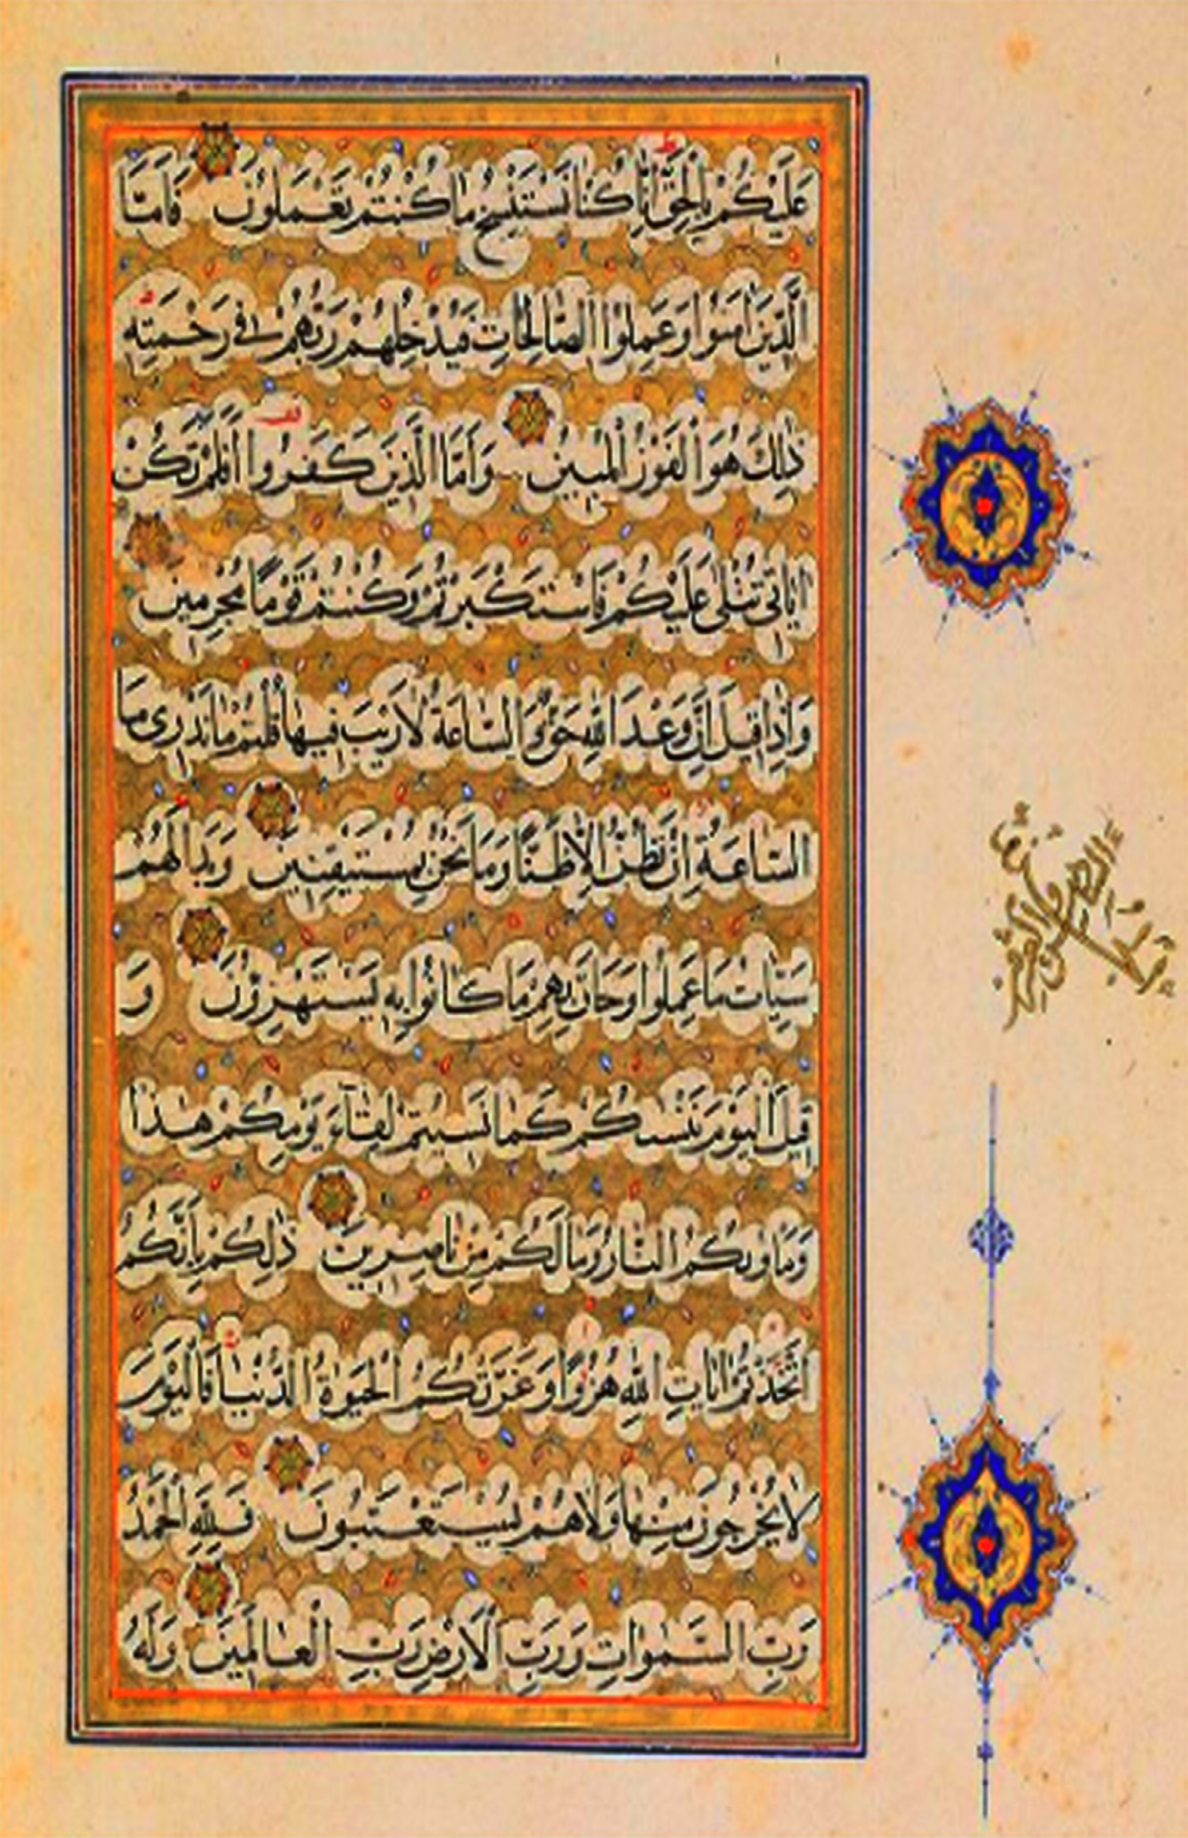 عَلَيْكُمْ بِالْحَقِّ اِنَّا كُنَّا نَسْتَنْسِخُ مَا كُنْتُمْ تَعْمَلُونَ فَاَمَّا
الَّذِينَ اٰمَنُوا وَعَمِلُوا الصَّالِحَاتِ فَيُدْخِلُهُمْ رَبُّهُمْ فِي رَحْمَتِهِ
ذٰلِكَ هُوَ الْفَوْزُ الْمُبِينُ وَاَمَّا الَّذِينَ كَفَرُوا اَفَلَمْ تَكُنْ
اٰيَاتِي تُتْلٰى عَلَيْكُمْ فَاسْتَكْبَرْتُمْ وَكُنْتُمْ قَوْمًا مُجْرِمِينَ
وَاِذَا قِيلَ اِنَّ وَعْدَ اللّٰهِ حَقٌّ وَالسَّاعَةُ لَا رَيْبَ فِيهَا قُلْتُمْ مَا نَدْرِي مَا
السَّاعَةُ اِنْ نَظُنُّ اِلَّا ظَنًّا وَمَا نَحْنُ بِمُسْتَيْقِنِينَ وَبَدَا لَهُمْ
سَيِّئَاتُ مَا عَمِلُوا وَحَاقَ بِهِمْ مَا كَانُوا بِهِ يَسْتَهْزِؤُنَ وَ
قِيلَ الْيَوْمَ نَنْسٰيكُمْ كَمَا نَسِيتُمْ لِقَآءَ يَوْمِكُمْ هٰذَا
وَمَاْوٰيكُمُ النَّارُ وَمَا لَكُمْ مِنْ نَاصِرِينَ ذٰلِكُمْ بِاَنَّكُمُ
اتَّخَذْتُمْ اٰيَاتِ اللّٰهِ هُزُوًا وَغَرَّتْكُمُ الْحَيٰوةُ الدُّنْيَا فَالْيَوْمَ
لَا يُخْرَجُونَ مِنْهَا وَلَا هُمْ يُسْتَعْتَبُونَ فَلِلّٰهِ الْحَمْدُ
رَبِّ السَّمٰوَاتِ وَرَبِّ الْاَرْضِ رَبِّ الْعَالَمِينَ وَلَهُ